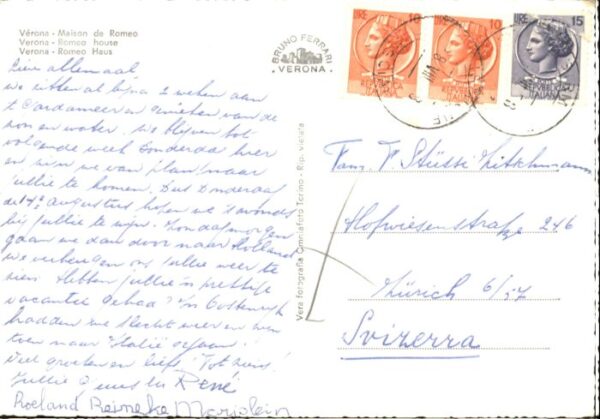 Vérona - Maison de Romeo
Verona - Romeo house
Verona - Romeo Haus
BRUNO FERRARI
VERONA
LIRE 10
LIRE 10
LIRE 15
REPUBBLICA ITALIANA
Lieve allemaal
we zitten al bijna 2 weken aan
't Gardameer en genieten van de
zon en water. We blijven tot
volgende week Donderdag hier
en zijn we van plan naar
jullie te komen. Dus Donderdag
de 14e augustus hopen we 's avonds
bij jullie te zijn. Zondagmorgen
gaan we dan door naar Holland
we verheugen ons jullie weer te
zien. Hebben jullie 'n prettige
vacantie gehad? In Oostenrijk
hadden we slecht weer en zijn
toen naar Italië gegaan!
Veel groeten en liefs. Tot ziens!
Jullie René
Roeland Reineke Marjolein
Vera fotografia Omniafoto Torino - Rip. vietata
Fam. F. Stüssi-Litschmann
Hofwiesenstraße 246
Zürich 6/57
Svizerra